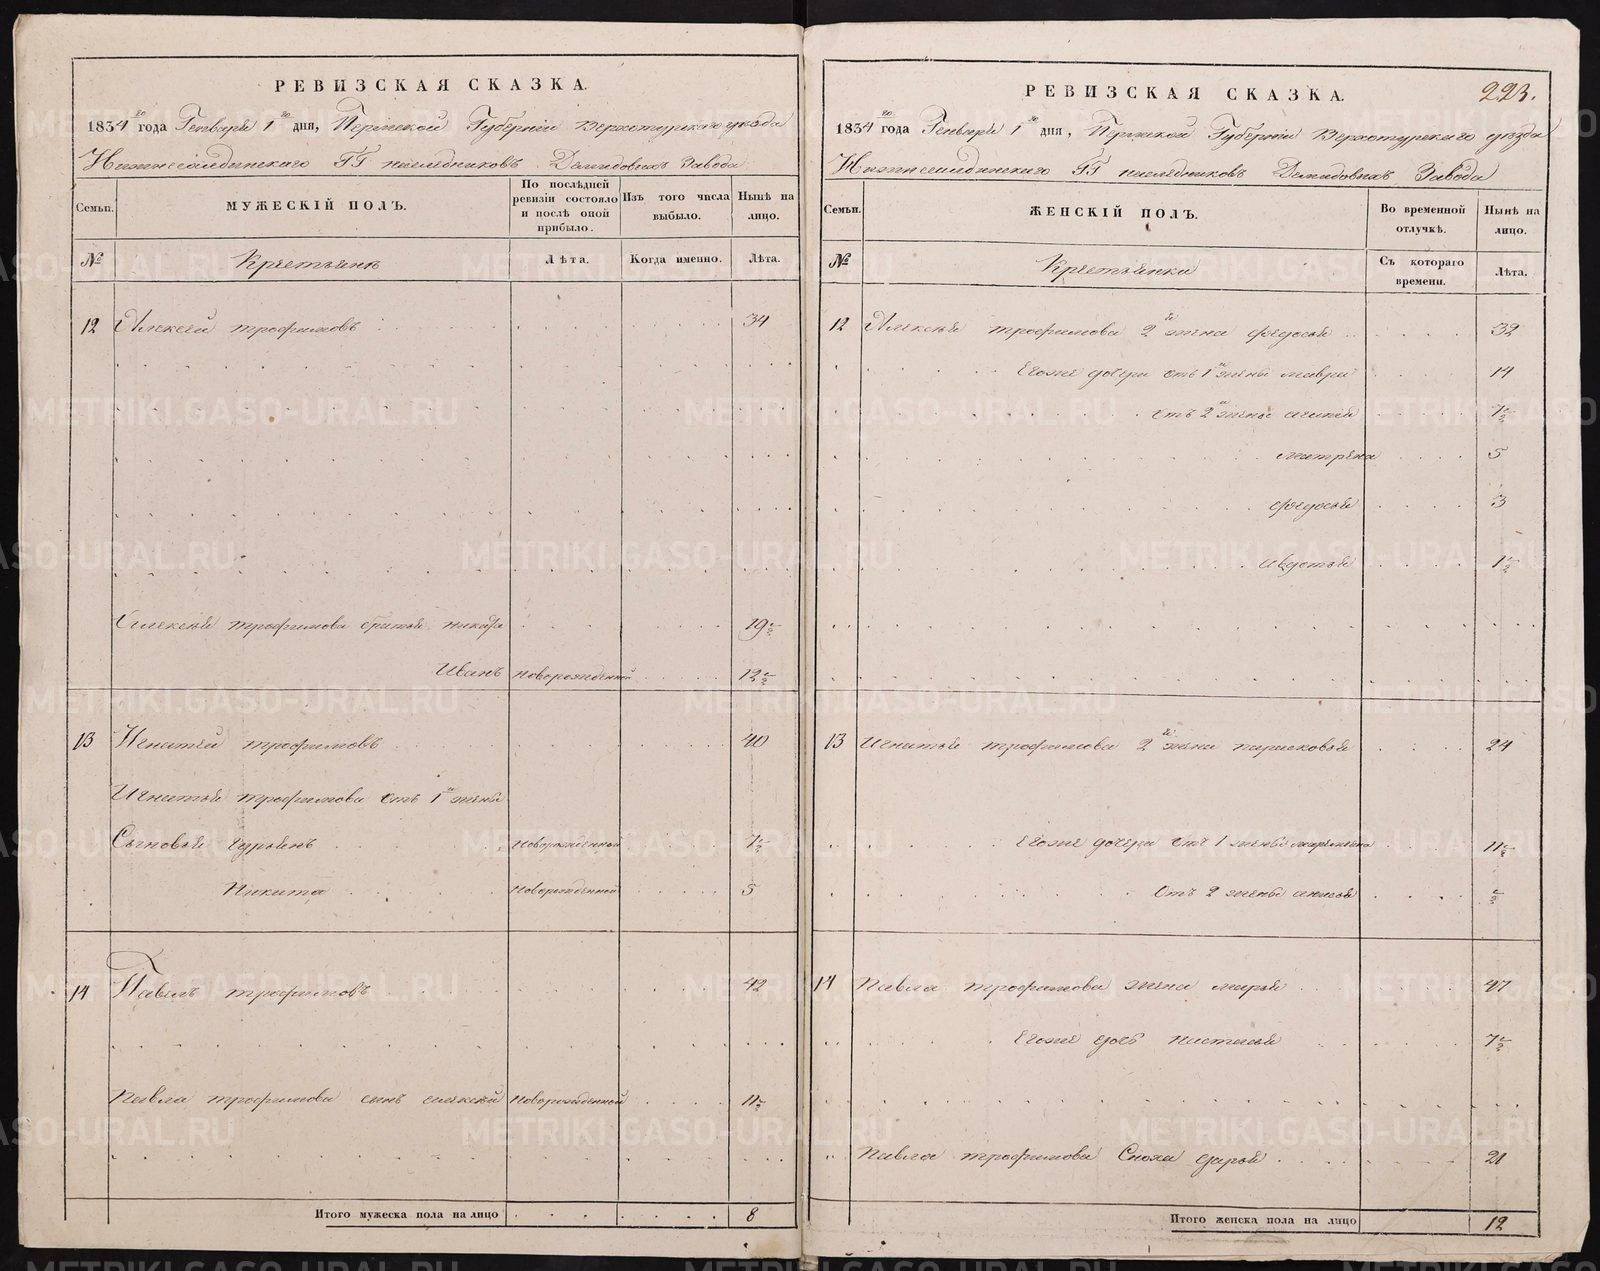 РЕВИЗСКАЯ СКАЗКА.
1834го года Генваря 1го дня, Пермской Губернии Верхотурского уезда
Нижнесалдинского ГГ наследниковъ Демидовыхъ Завода
Семьи.
МУЖЕСКІЙ ПОЛЪ.
По послѣдней ревизіи состояло и послѣ оной прибыло.
Изъ того числа выбыло.
Нынѣ на лицо.
№
Крестьянъ
Лѣта.
Когда именно.
Лѣта.
12 Алексей трофимовъ 34
Алексея трофимова братья никифоръ 19½
Иванъ новорожденной 12½
13 Игнатей трофимовъ 40
Игнатья трофимова отъ 1й жены
Сыновья гурьянъ новорожденной 7½
Никита новорожденной 5
14 Павелъ трофимовъ 42
Павла трофимова сынъ алексей новорожденной 11½
Итого мужеска пола на лицо 8
РЕВИЗСКАЯ СКАЗКА.
223.
1834го года Генваря 1го дня, Пермской Губернии Верхотурского уезда
Нижнесалдинского ГГ наследниковъ Демидовыхъ Завода
Семьи.
ЖЕНСКІЙ ПОЛЪ.
Во временной отлучкѣ.
Нынѣ на лицо.
№
Крестьянки
Съ котораго времени.
Лѣта.
12 Алексея трофимова 2я жена федосья 32
Егоже дочери отъ 1й жены мавра 14
отъ 2й жены 7½
матрена 5
федосья 3
авдотья 1½
13 Игнатья трофимова 2я жена парасковья 24
Егоже дочери отъ 1 жены 11½
отъ 2 жены анисья ½
14 Павла трофимова жена марья 47
Егоже дочь настасья 7½
Павла трофимова Сноха дарья 21
Итого женска пола на лицо 12
METRIKI.GASO-URAL.RU